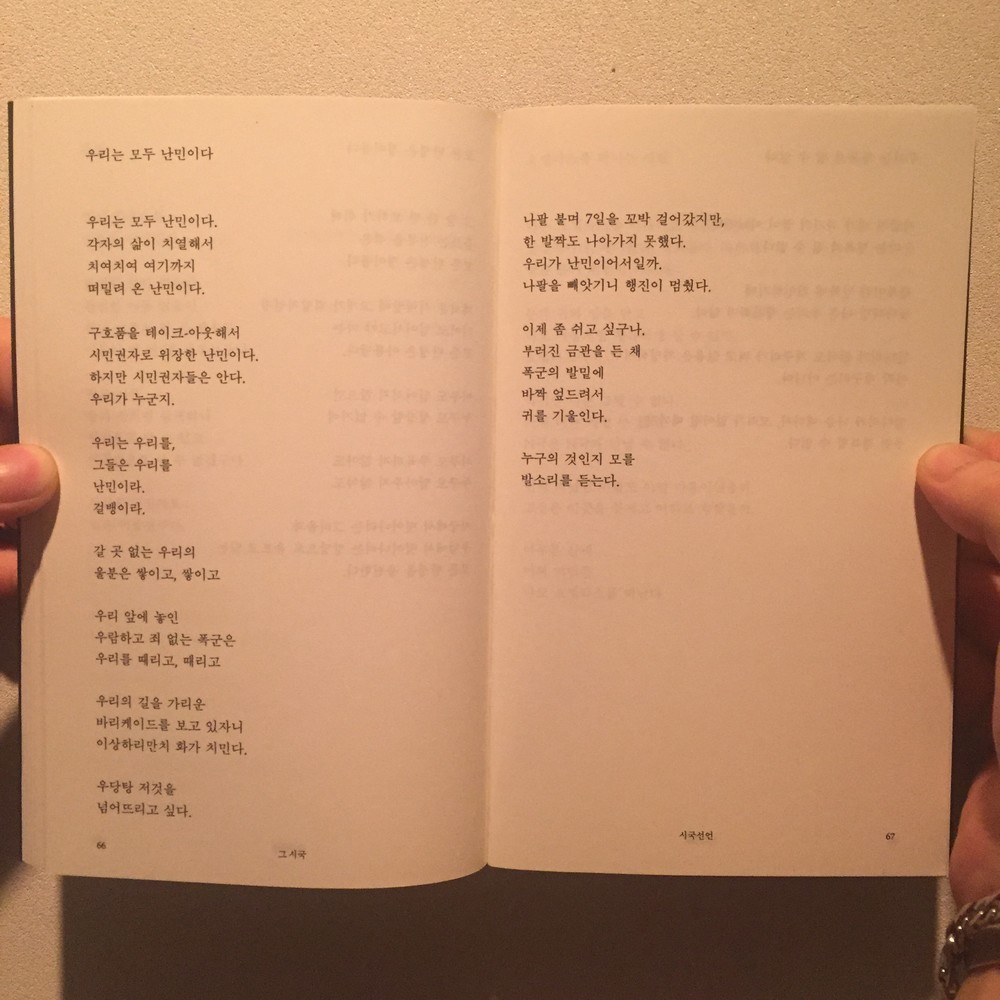 우리는 모두 난민이다
우리는 모두 난민이다.
각자의 삶이 치열해서
치여치여 여기까지
떠밀려 온 난민이다.
구호품을 테이크-아웃해서
시민권자로 위장한 난민이다.
하지만 시민권자들은 안다.
우리가 누군지.
우리는 우리를,
그들은 우리를
난민이라.
걸뱅이라.
갈 곳 없는 우리의
울분은 쌓이고, 쌓이고
우리 앞에 놓인
우람하고 죄 없는 폭군은
우리를 때리고, 때리고
우리의 길을 가리운
바리케이드를 보고 있자니
이상하리만치 화가 치민다.
우당탕 저것을
넘어뜨리고 싶다.
66
그 시국
나팔 불며 7일을 꼬박 걸어갔지만,
한 발짝도 나아가지 못했다.
우리가 난민이어서일까.
나팔을 빼앗기니 행진이 멈췄다.
이제 좀 쉬고 싶구나.
부러진 금관을 든 채
폭군의 발밑에
바짝 엎드려서
귀를 기울인다.
누구의 것인지 모를
발소리를 듣는다.
시국선언
67